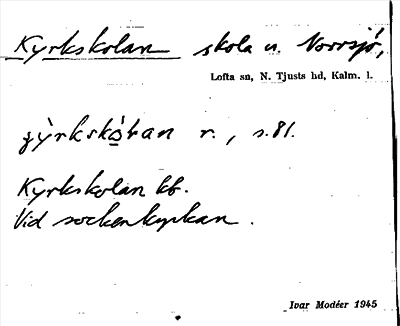 Kyrkskolan skola u. Norrsjö,
Lofta sn, N. Tjusts hd, Kalm. l.
r., s. 81.
Kyrkskolan kb.
Vid sockenkyrkan.
Ivar Modéer 1945